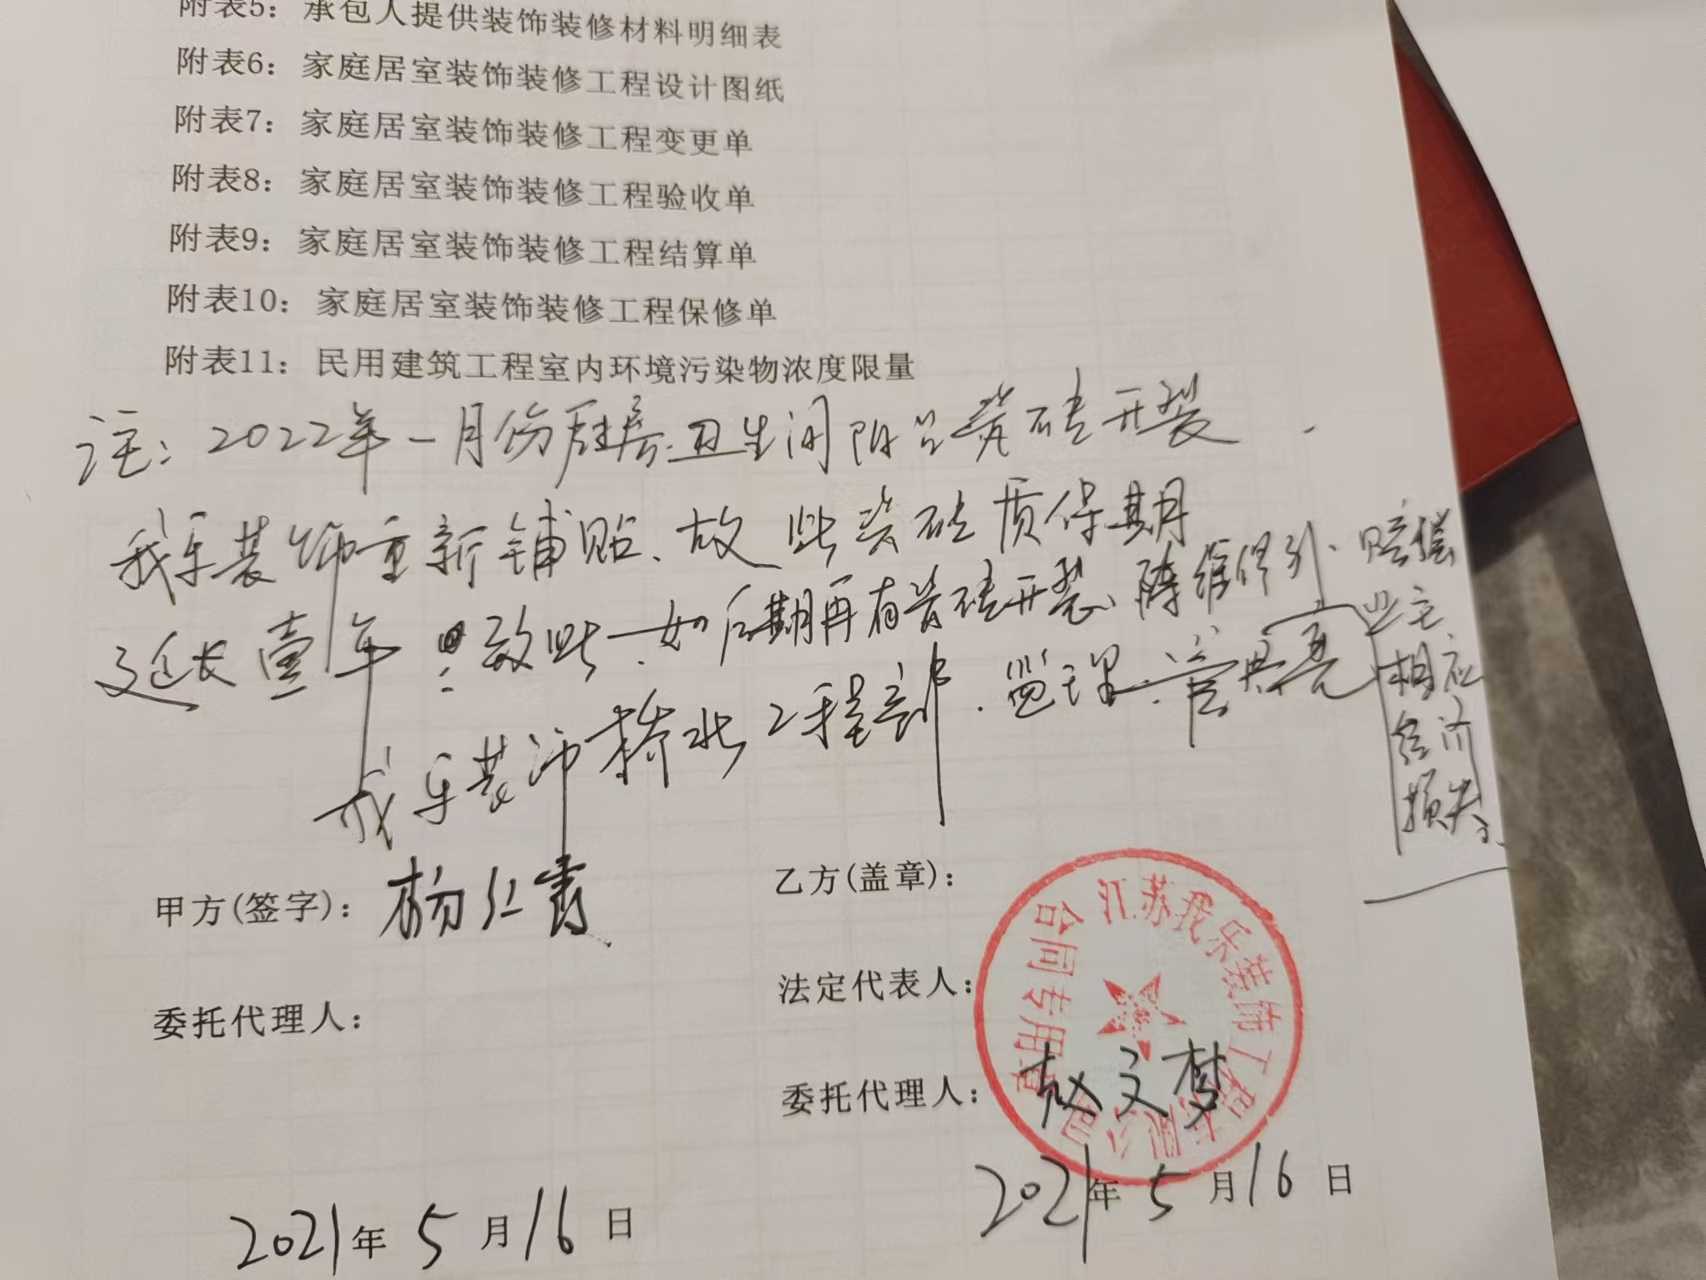 附表5：承包人提供装饰装修材料明细表
附表6：家庭居室装饰装修工程设计图纸
附表7：家庭居室装饰装修工程变更单
附表8：家庭居室装饰装修工程验收单
附表9：家庭居室装饰装修工程结算单
附表10：家庭居室装饰装修工程保修单
附表11：民用建筑工程室内环境污染物浓度限量
注：2022年一月份厨房.卫生间阳台瓷砖开裂
我乐装饰重新铺贴、故此瓷砖质保期
延长壹年！致此.如后期再有瓷砖开裂、除维修外.赔偿
业主
相应
经济
损失.
我乐装饰桥北工程部.监理：
甲方(签字)：杨红霞
乙方(盖章)：
法定代表人：
委托代理人：
委托代理人：赵文梦
江苏我乐装饰工程有限公司
合同专用章
2021年5月16日
2021年5月16日